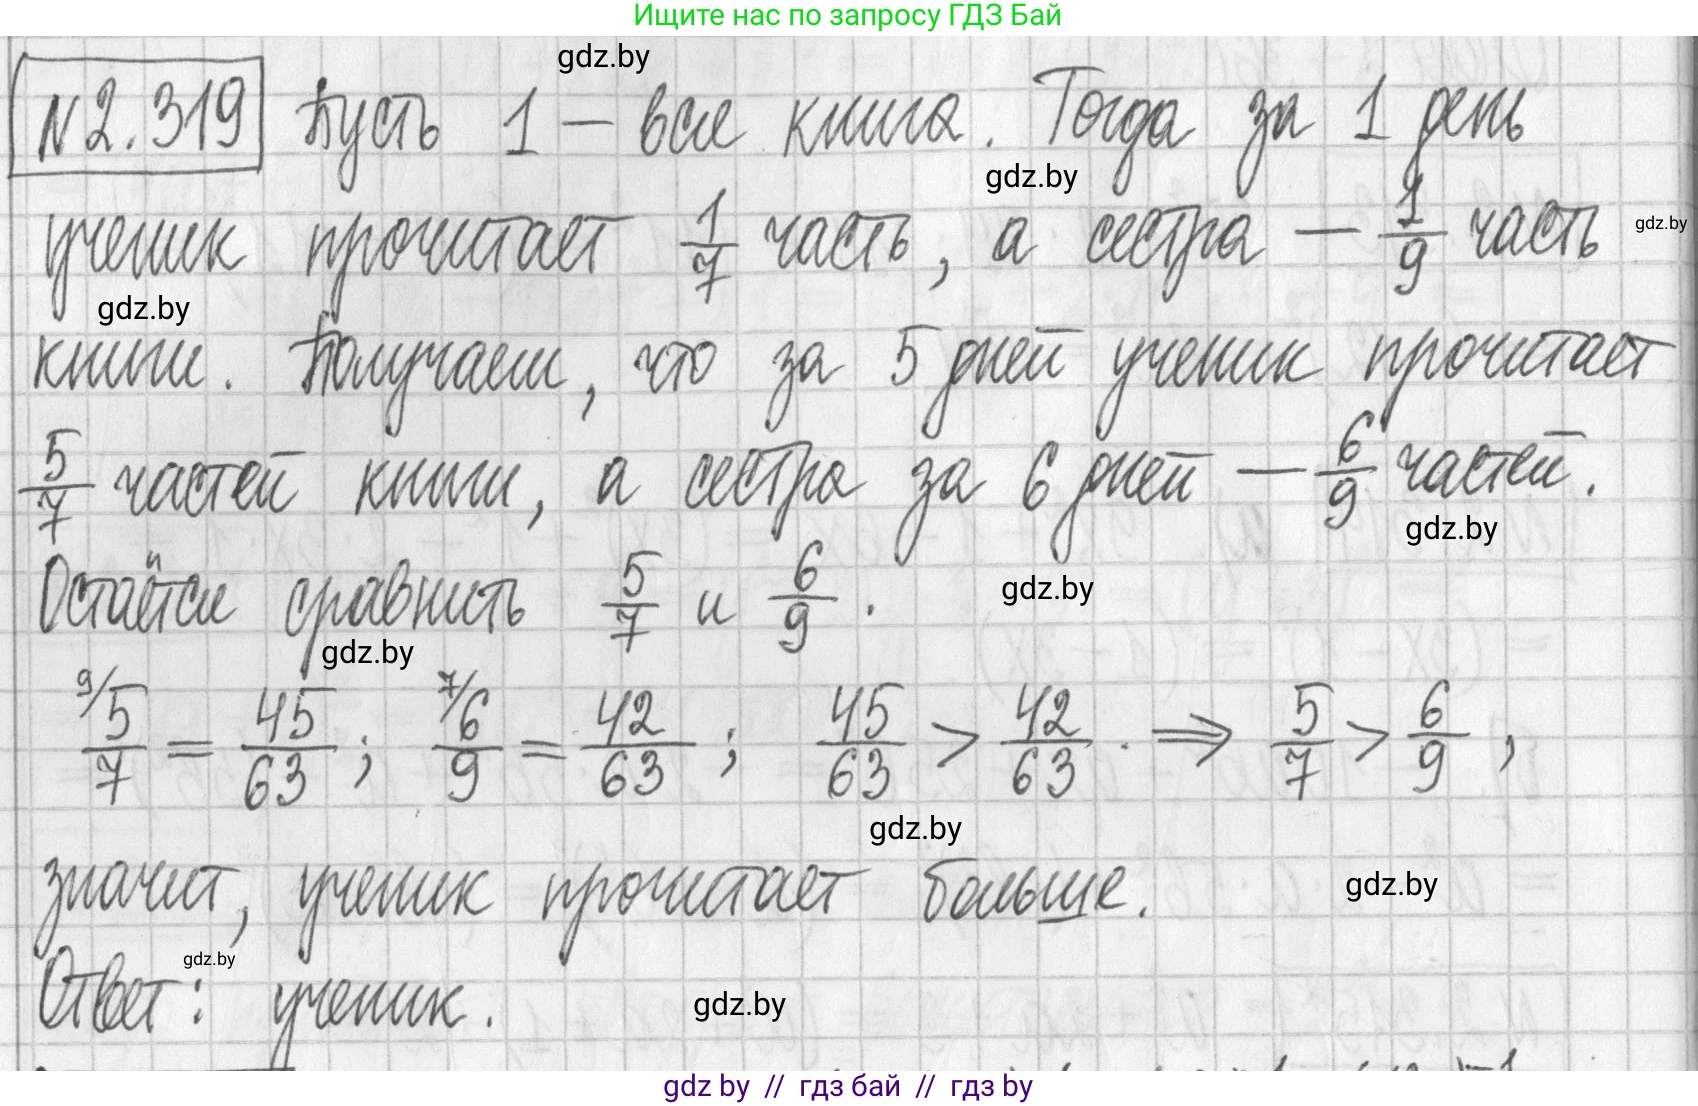 Ищите нас по запросу ГДЗ Бай
gdz.by
№2.319 Пусть 1 — вся книга. Тогда за 1 день
gdz.by
ученик прочитает 1/7 часть, а сестра — 1/9 часть
gdz.by
gdz.by
книги. Получаем, что за 5 дней ученик прочитает
5/7 частей книги, а сестра за 6 дней — 6/9 частей.
gdz.by
Остаётся сравнить 5/7 и 6/9.
gdz.by
gdz.by
9/ 5/7 = 45/63; 7/ 6/9 = 42/63; 45/63 > 42/63. ⇒ 5/7 > 6/9,
gdz.by
значит, ученик прочитает больше.
gdz.by
gdz.by
Ответ: ученик.
gdz.by
gdz by // гдз бай // гдз by